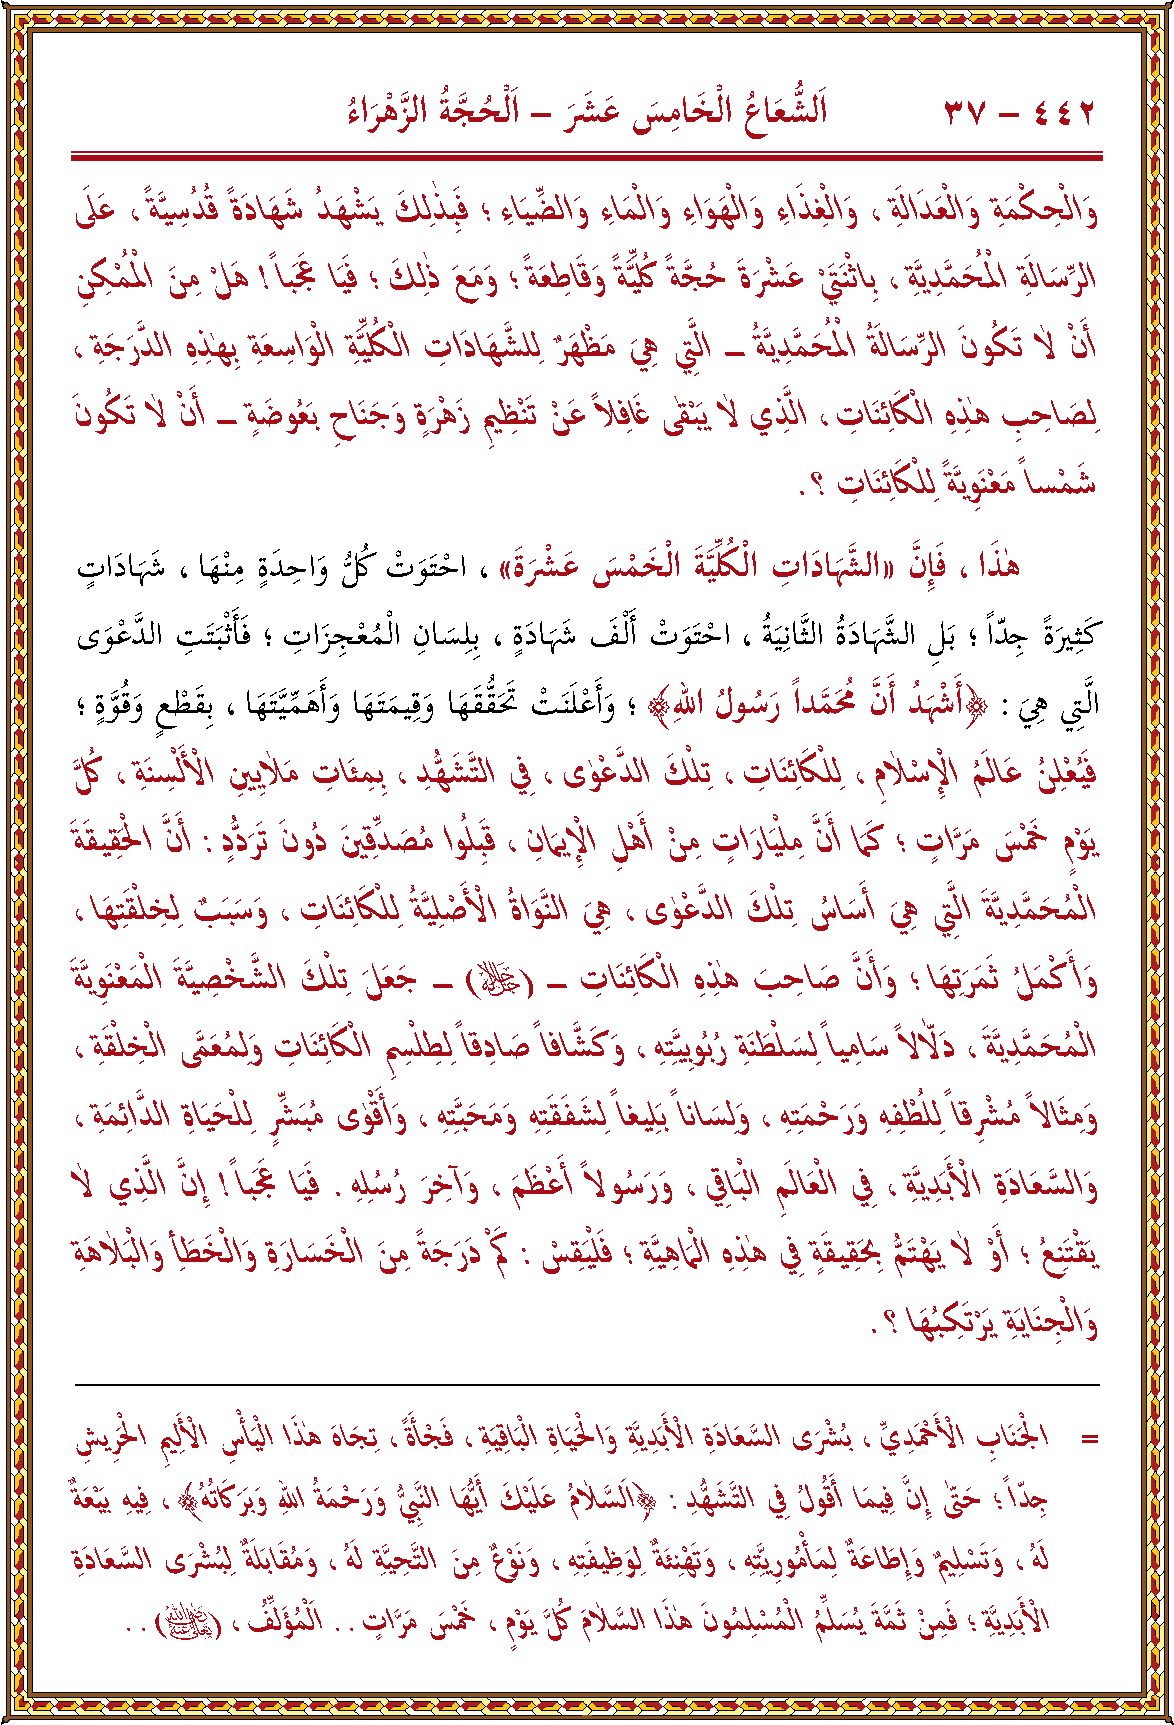 ٤٤٢ - ٣٧ اَلشُّعَاعُ الْخَامِسَ عَشَرَ - اَلْحُجَّةُ الزَّهْرَاءُ
وَالْحِكْمَةِ وَالْعَدَالَةِ ، وَالْغِذَاءِ وَالْهَوَاءِ وَالْمَاءِ وَالضِّيَاءِ ؛ فَبِذٰلِكَ يَشْهَدُ شَهَادَةً قُدُسِيَّةً ، عَلَى
الرِّسَالَةِ الْمُحَمَّدِيَّةِ ، بِاثْنَتَيْ عَشْرَةَ حُجَّةً كُلِّيَّةً وَقَاطِعَةً ؛ وَمَعَ ذٰلِكَ ؛ فَيَا عَجَباً ! هَلْ مِنَ الْمُمْكِنِ
أَنْ لاٰ تَكُونَ الرِّسَالَةُ الْمُحَمَّدِيَّةُ ــ الَّتِي هِيَ مَظْهَرٌ لِلشَّهَادَاتِ الْكُلِّيَّةِ الْوَاسِعَةِ بِهٰذِهِ الدَّرَجَةِ ،
لِصَاحِبِ هٰذِهِ الْكَائِنَاتِ ، الَّذِي لاٰ يَبْقٰى غَافِلاً عَنْ تَنْظِيمِ زَهْرَةٍ وَجَنَاحِ بَعُوضَةٍ ــ أَنْ لاٰ تَكُونَ
شَمْساً مَعْنَوِيَّةً لِلْكَائِنَاتِ ؟ .
هٰذَا ، فَإِنَّ «الشَّهَادَاتِ الْكُلِّيَّةَ الْخَمْسَ عَشْرَةَ» ، احْتَوَتْ كُلُّ وَاحِدَةٍ مِنْهَا ، شَهَادَاتٍ
كَثِيرَةً جِدّاً ؛ بَلِ الشَّهَادَةُ الثَّانِيَةُ ، احْتَوَتْ أَلْفَ شَهَادَةٍ ، بِلِسَانِ الْمُعْجِزَاتِ ؛ فَأَثْبَتَتِ الدَّعْوَى
الَّتِي هِيَ : ﴿أَشْهَدُ أَنَّ مُحَمَّداً رَسُولُ اللهِ﴾ ؛ وَأَعْلَنَتْ تَحَقُّقَهَا وَقِيمَتَهَا وَأَهَمِّيَّتَهَا ، بِقَطْعٍ وَقُوَّةٍ ؛
فَيُعْلِنُ عَالَمُ الْإِسْلاَمِ ، لِلْكَائِنَاتِ ، تِلْكَ الدَّعْوٰى ، فِي التَّشَهُّدِ ، بِمِئَاتِ مَلاَيِينِ الْأَلْسِنَةِ ، كُلَّ
يَوْمٍ خَمْسَ مَرَّاتٍ ؛ كَمَا أَنَّ مِلْيَارَاتٍ مِنْ أَهْلِ الْإِيمَانِ ، قَبِلُوا مُصَدِّقِينَ دُونَ تَرَدُّدٍ : أَنَّ الْحَقِيقَةَ
الْمُحَمَّدِيَّةَ الَّتِي هِيَ أَسَاسُ تِلْكَ الدَّعْوٰى ، هِيَ النَّوَاةُ الْأَصْلِيَّةُ لِلْكَائِنَاتِ ، وَسَبَبٌ لِخِلْقَتِهَا ،
وَأَكْمَلُ ثَمَرَتِهَا ؛ وَأَنَّ صَاحِبَ هٰذِهِ الْكَائِنَاتِ ــ (ﷻ) ــ جَعَلَ تِلْكَ الشَّخْصِيَّةَ الْمَعْنَوِيَّةَ
الْمُحَمَّدِيَّةَ ، دَلاَّلاً سَامِياً لِسَلْطَنَةِ رُبُوبِيَّتِهِ ، وَكَشَّافاً صَادِقاً لِطِلْسِمِ الْكَائِنَاتِ وَلِمُعَمَّى الْخِلْقَةِ ،
وَمِثَالاً مُشْرِقاً لِلُطْفِهِ وَرَحْمَتِهِ ، وَلِسَاناً بَلِيغاً لِشَفَقَتِهِ وَمَحَبَّتِهِ ، وَأَقْوٰى مُبَشِّرٍ لِلْحَيَاةِ الدَّائِمَةِ ،
وَالسَّعَادَةِ الْأَبَدِيَّةِ ، فِي الْعَالَمِ الْبَاقِي ، وَرَسُولاً أَعْظَمَ ، وَآخِرَ رُسُلِهِ . فَيَا عَجَباً ! إِنَّ الَّذِي لاٰ
يَقْتَنِعُ ؛ أَوْ لاٰ يَهْتَمُّ بِحَقِيقَةٍ فِي هٰذِهِ الْمَاهِيَّةِ ؛ فَلْيَقِسْ : كَمْ دَرَجَةً مِنَ الْخَسَارَةِ وَالْخَطَأِ وَالْبَلاَهَةِ
وَالْجِنَايَةِ يَرْتَكِبُهَا ؟ .
= الْجَنَابِ الْأَحْمَدِيِّ ، بُشْرَى السَّعَادَةِ الْأَبَدِيَّةِ وَالْحَيَاةِ الْبَاقِيَةِ ، فَجْأَةً ، تِجَاهَ هٰذَا الْيَأْسِ الْأَلِيمِ الْحَرِيشِ
جِدّاً ؛ حَتّٰى إِنَّ فِيمَا أَقُولُ فِي التَّشَهُّدِ : ﴿اَلسَّلاَمُ عَلَيْكَ أَيُّهَا النَّبِيُّ وَرَحْمَةُ اللهِ وَبَرَكَاتُهُ﴾ ، فِيهِ بَيْعَةٌ
لَهُ ، وَتَسْلِيمٌ وَإِطَاعَةٌ لِمَأْمُورِيَّتِهِ ، وَتَهْنِئَةٌ لِوَظِيفَتِهِ ، وَنَوْعٌ مِنَ التَّحِيَّةِ لَهُ ، وَمُقَابَلَةٌ لِبُشْرَى السَّعَادَةِ
الْأَبَدِيَّةِ ؛ فَمِنْ ثَمَّةَ يُسَلِّمُ الْمُسْلِمُونَ هٰذَا السَّلاَمَ كُلَّ يَوْمٍ ، خَمْسَ مَرَّاتٍ . . اَلْمُؤَلِّفُ ، (رضي الله تعالى عنه) . .